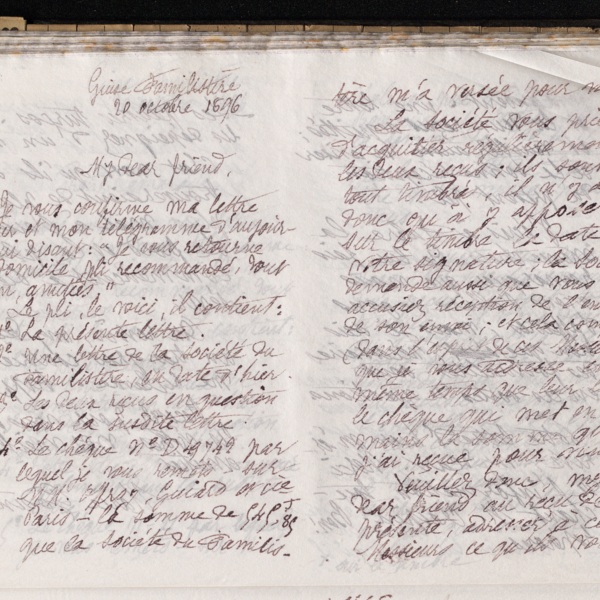 Guise Familistère
20 octobre 1896
My dear friend,
Je vous confirme ma lettre
et mon télégramme d'aujour-
disant: "Je vous retourne
domicile pli recommandé, tout
amitiés"
Le pli, le voici, il contient:
La présente lettre.
Une lettre de la société du
Familistère, en date d'hier.
Les deux reçus en question
dans la susdite lettre.
4° Le chèque N° D 49749 par
lequel je vous remets sur
Guiard et Cie
Paris - la somme de
que la société du Familis-
tère m'a versée pour
La société vous prie
d'acquitter régulièrement
les deux reçus; ils sont
tout timbrés, il n'y a
donc qu'à y apposer
sur le timbre la date
votre signature; la
demande aussi que vous
accusiez réception de l'en
de son envoi; et cela
dans
que je vous adresse en
même temps que
le chèque qui met en
mains la somme
j'ai reçue pour
Veuillez donc
dear friend au reçu de
présente, adresser à ces
Messieurs ce qu'ils